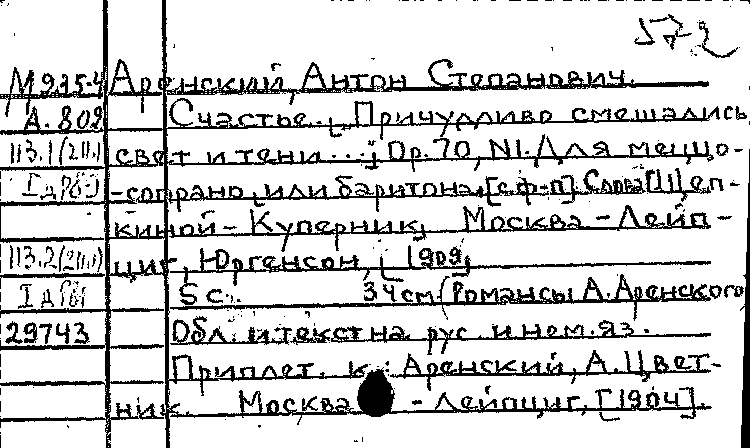 572
М925-4 Аренский, Антон Степанович.
А. 809 Счастье. [Причудливо смешались
113.1(2111) свет и тени...; Op. 70, N1. Для меццо-
-сопрано или баритона. [с ф-п] Слова [Щеп-
киной - Куперник, Москва - Лейп-
113.2(2111) циг, Юргенсон, [1909]
5 с. 34 см (Романсы А. Аренского)
29743 Обл. и текст на рус. и нем. яз.
Приплет. к: Аренский, А. Цвет-
ник. Москва - Лейпциг, [1904].